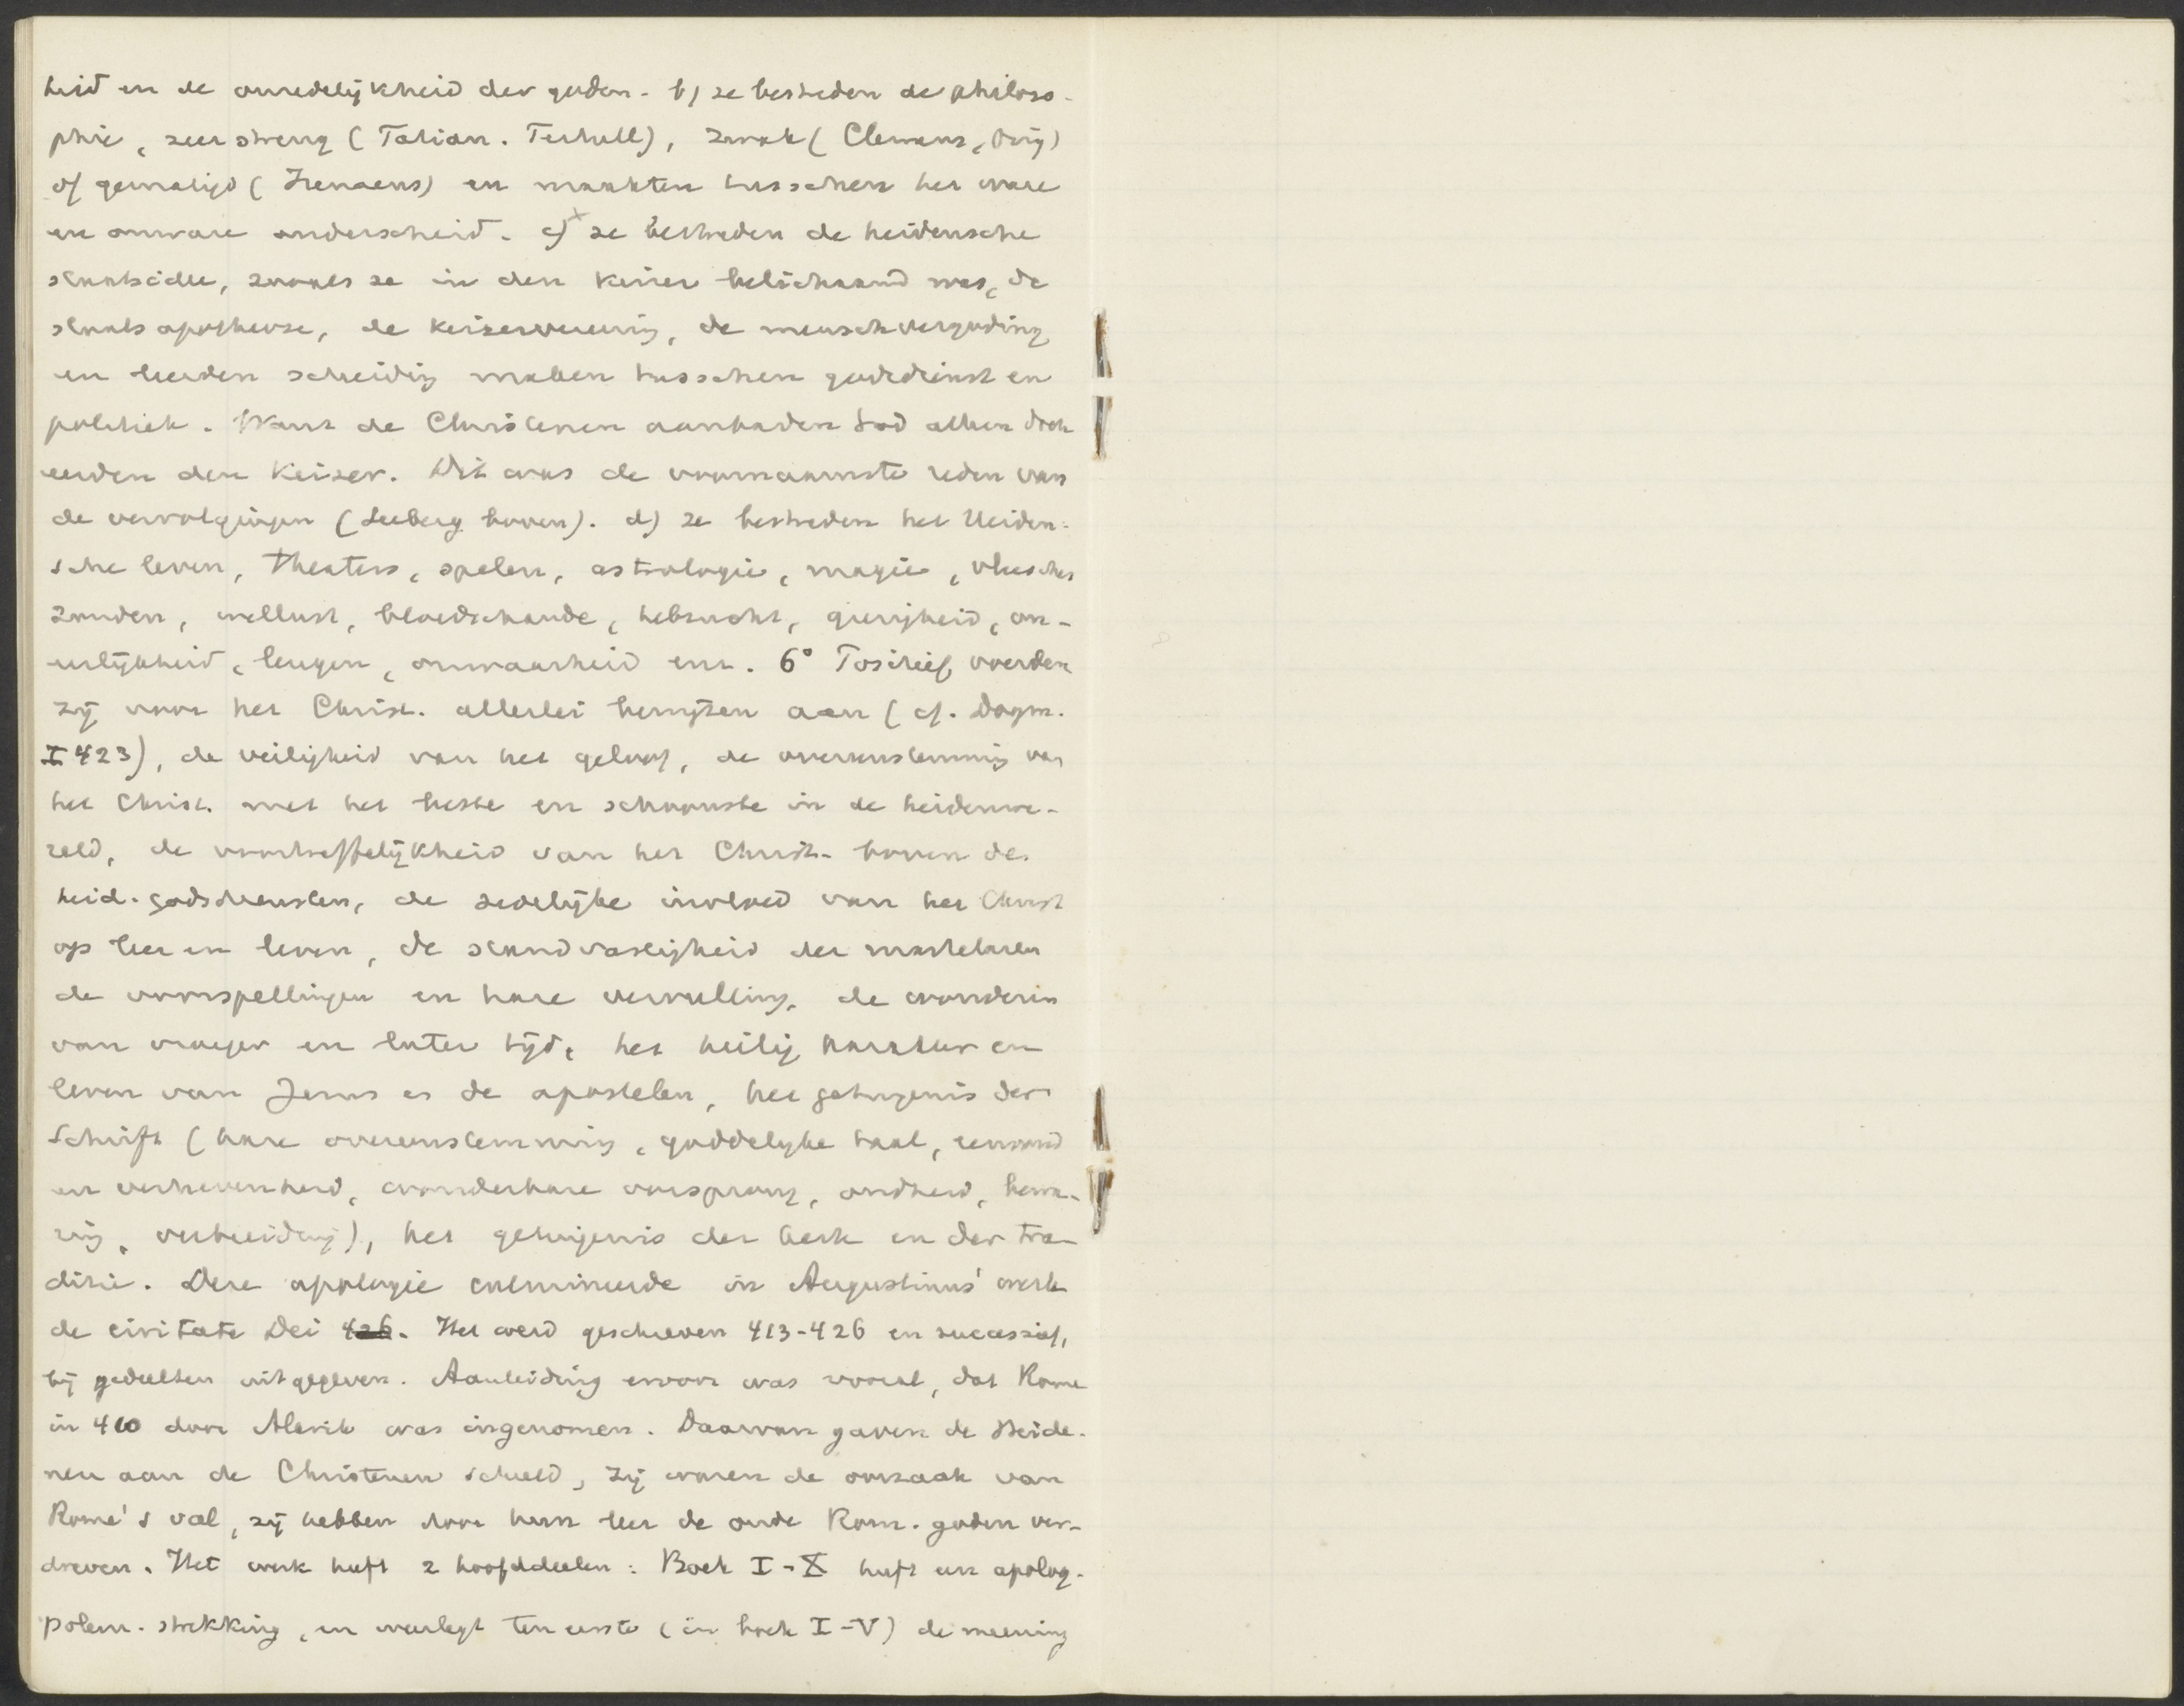 heid en de onredelijkheid der goden. b) ze bestreden de philoso-
phie, zeer streng (Tatian. Tertull), zwak (Clemens, Orig)
of gematigd (Irenaeus) en maakten tusschen het ware
en onware onderscheid. c) ze bestreden de heidensche
staatsidee, zooals ze in den keizer belichaamd was, de
staatsapotheose, de keizervereering, de menschvergoding
en leerden scheiding maken tusschen godsdienst en
politiek. Want de Christenen aanbaden God alleen doch
eerden den keizer. Dit was de voornaamste reden van
de vervolgingen (Seeberg boven). d) ze bestreden het Heiden-
sche leven, theaters, spelen, astrologie, magie, vleesches
zonden, wellust, bloedschande, hebzucht, gierigheid, on-
eerlijkheid, leugen, onwaarheid enz. 6° Positief voerden
zij voor het Christ. allerlei bewijzen aan (cf. Dogm.
I 423), de veiligheid van het geloof, de overeenstemming van
het Christ. met het beste en schoonste in de heidenwe-
reld, de voortreffelijkheid van het Christ. boven de
heid. godsdiensten, de zedelijke invloed van het Christ
op leer en leven, de standvastigheid der martelaren
de voorspellingen en hare vervulling, de wonderen
van vroeger en later tijd, het heilig karakter en
leven van Jezus en de apostelen, het getuigenis der
Schrift (hare overeenstemming, goddelijke taal, eenvoud
en verhevenheid, wonderbare oorsprong, oudheid, bewa-
ring, verbreiding), het getuigenis der kerk en der tra-
ditie. Deze apologie culmineerde in Augustinus' werk
de civitate Dei 426. Het werd geschreven 413-426 en successief,
bij gedeelten uitgegeven. Aanleiding ervoor was vooral, dat Rome
in 410 door Alarik was ingenomen. Daarvan gaven de Heide-
nen aan de Christenen schuld, zij waren de oorzaak van
Rome's val, zij hebben door hun leer de oude Rom. goden ver-
dreven. Het werk heeft 2 hoofddeelen: Boek I-X heeft een apolog.
polem. strekking, en weerlegt ten eerste (in boek I-V) de meening